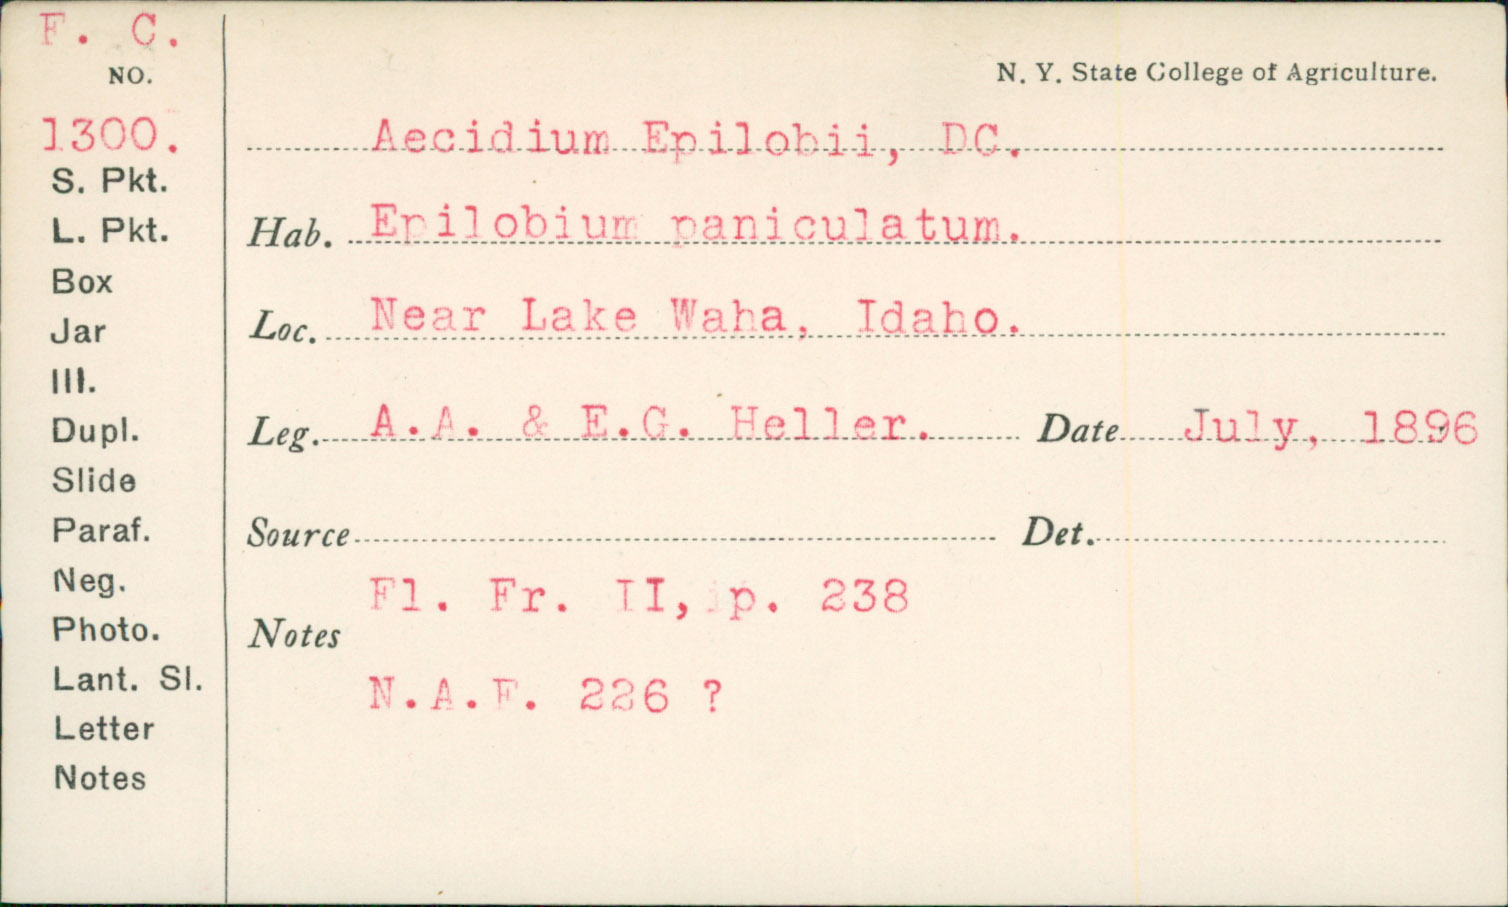 F. C.
NO.
N. Y. State College of Agriculture.
1300.
Aecidium Epilobii, DC.
S. Pkt.
L. Pkt.
Hab. Epilobium paniculatum.
Box
Jar
Loc. Near Lake Waha, Idaho.
Ill.
Dupl.
Leg. A.A. & E.G. Heller. Date July, 1896
Slide
Paraf.
Source Det.
Neg.
Fl. Fr. II, p. 238
Photo.
Notes
Lant. Sl.
N.A.F. 226 ?
Letter
Notes